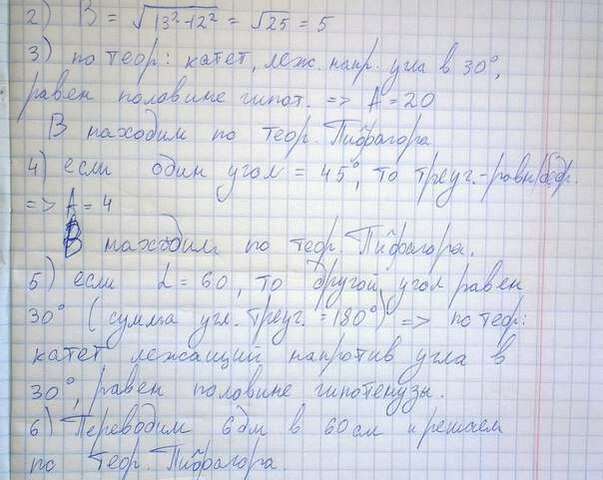 2) B = √13²-12² = √25 = 5
3) по теор: катет, леж. напр. угла в 30°,
равен половине гипот. => A = 20
В находим по теор. Пифрагора
4) если один угол = 45°, то треуг.-равнобедр.
=> A = 4
В находим по теор. Пифрагора.
5) если L = 60, то другой угол равен
30° (сумма угл. треуг. = 180°) => по теор:
катет лежащий напротив угла в
30°, равен половине гипотенузы.
6) Переводим 6дм в 60см и решаем
по теор. Пифрагора.